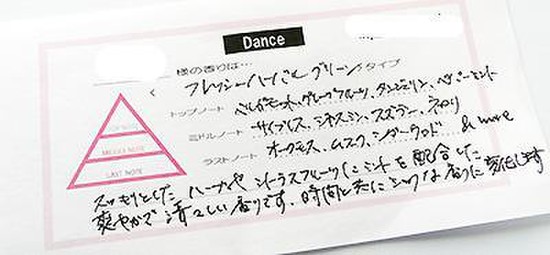 Dance
様の香りは…
フレッシーハーバルグリーンタイプ
トップノート ベルガモット、グレープフルーツ、タンジェリン、ペパーミント
ミドルノート サイプレス、ジャスミン、スズラン、ネロリ
ラストノート オークモス、ムスク、シダーウッド & more
TOP NOTE
MIDDLE NOTE
LAST NOTE
スッキリとした ハーブや シトラスフルーツにミントを配合した
爽やかで清々しい香りです。時間と共にシックな香りに変化します